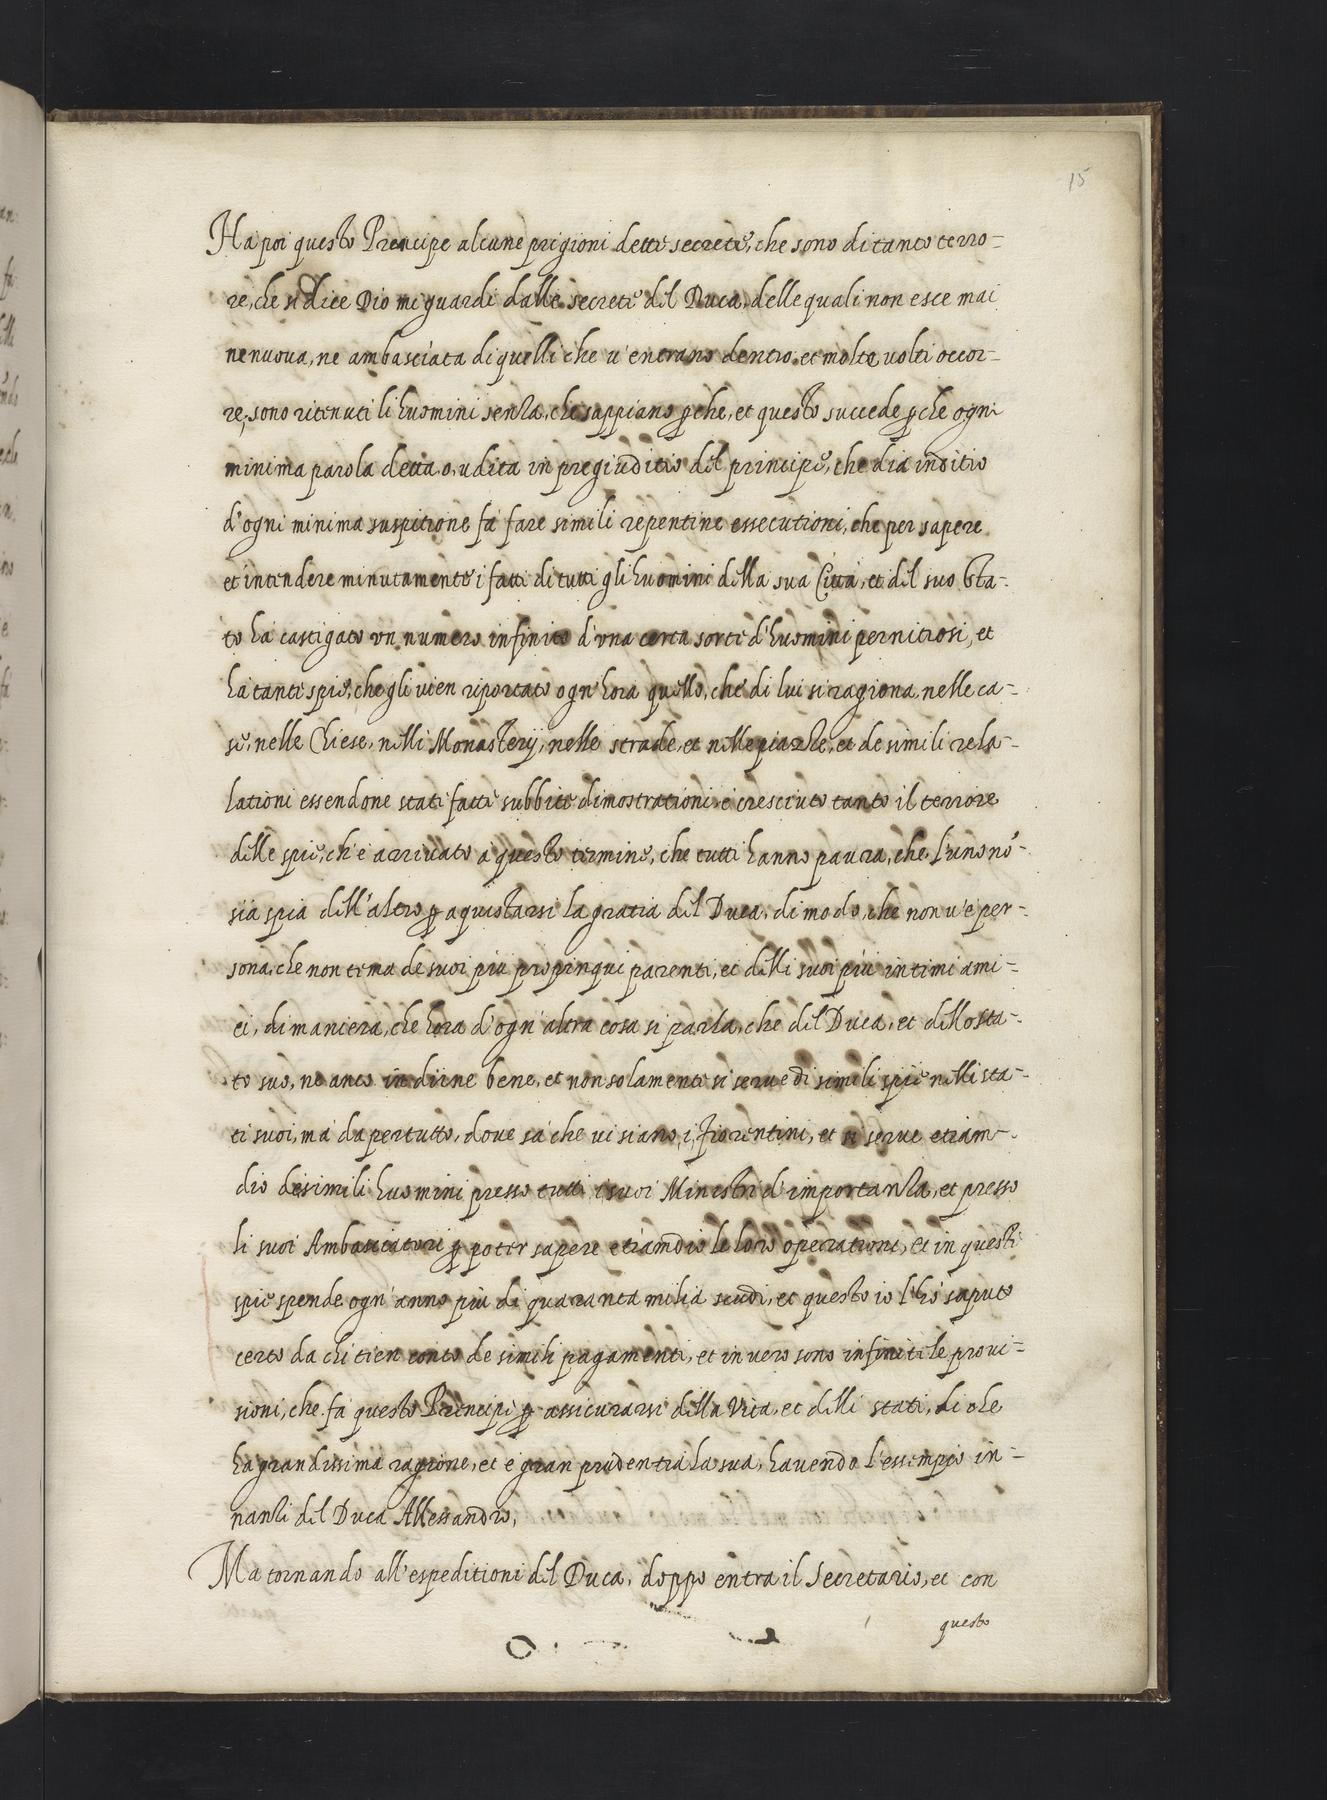 15
Ha poi questo Prencipe alcune prigioni dette secrete, che sono di tanto terro-
re, che si dice Dio mi guardi dalle secrete del Duca, delle quali non esce mai
ne nuova, ne ambasciata di quelli che v'entrano dentro. et molte volti occor-
re, sono ritenuti li huomini senza, che sappiano ꝑche, et questo succede ꝑche ogni
minima parola detta, o, udita in pregiuditio del principe, che dia inditio
d'ogni minima suspitione fà fare simili repentine essecutioni, che per sapere
et intendere minutamente i fatti di tutti gli huomini della sua Città, et del suo Sta-
to hà castigato un numero infinito d'una certa sorte d'huomini pernitiosi, et
hà tante spie, che gli vien riportato ogn'hora quello, che di lui si ragiona nelle ca-
se, nelle Chiese, nelli Monasterij, nelle strade, et nelle piazze, et de simili rela-
lationi essendone state fatte subbite dimostrationi è cresciuto tanto il terrore
delle spie, ch'è arrivato à questo termine, che tutti hanno paura, che l'uno nō
sia spia dell'altro ꝑ aquistarsi la gratia del Duca, di modo, che non v'è per-
sona, che non tema de suoi piu propinqui parenti, et delli suoi più intimi ami-
ci, di maniera, che hora d'ogn'altra cosa si parla, che del Duca, et dello sta-
to suo, ne anco in dirne bene, et non solamente si serve di simili spie nelli sta-
ti suoi, mà da per tutto, dove sà che vi siano i fiorentini, et si serve etiam-
dio de simili huomini presso tutti i suoi Ministri d'importanza, et presso
li suoi Ambasciatori ꝑ poter sapere etiamdio le loro operationi, et in queste
spie spende ogn'anno più di quaranta milia scudi, et questo io l'hò saputo
certo da chi tien conto de simili pagamenti, et in vero sono infinite le provi-
sioni, che fà questo Prencipe ꝑ assicurarsi della Vita, et delli stati, di che
hà grandissima ragione, et è gran prudentia la sua, havendo l'essempio in-
nanzi del Duca Allessandro,
Ma tornando all'espeditioni del Duca, doppo entra il Secretario, et con
questo